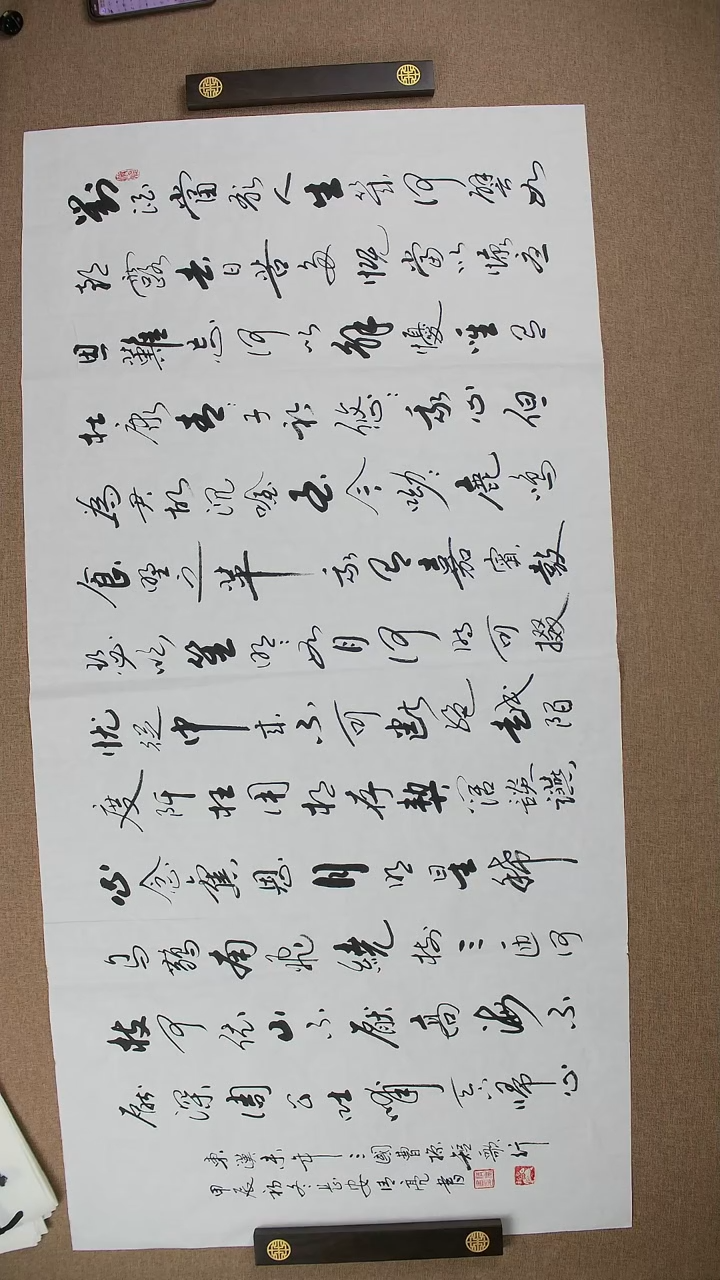 對酒當歌人生幾何譬如
朝露去日苦多慨當以慷憂
思難忘何以解憂唯有
杜康青〻子衿悠〻我心但
為君故沉吟至今呦〻鹿鳴
食野之苹我有嘉賓鼓
瑟吹笙明〻如月何時可掇
忧從中來不可斷絕越陌
度阡枉用相存契闊談讌
心念舊恩月明星稀
烏鵲南飛繞樹三匝何
枝可依山不厭高海不
厭深周公吐哺天下歸心
東漢末年三國曹操短歌行
甲辰初冬長安清亮書